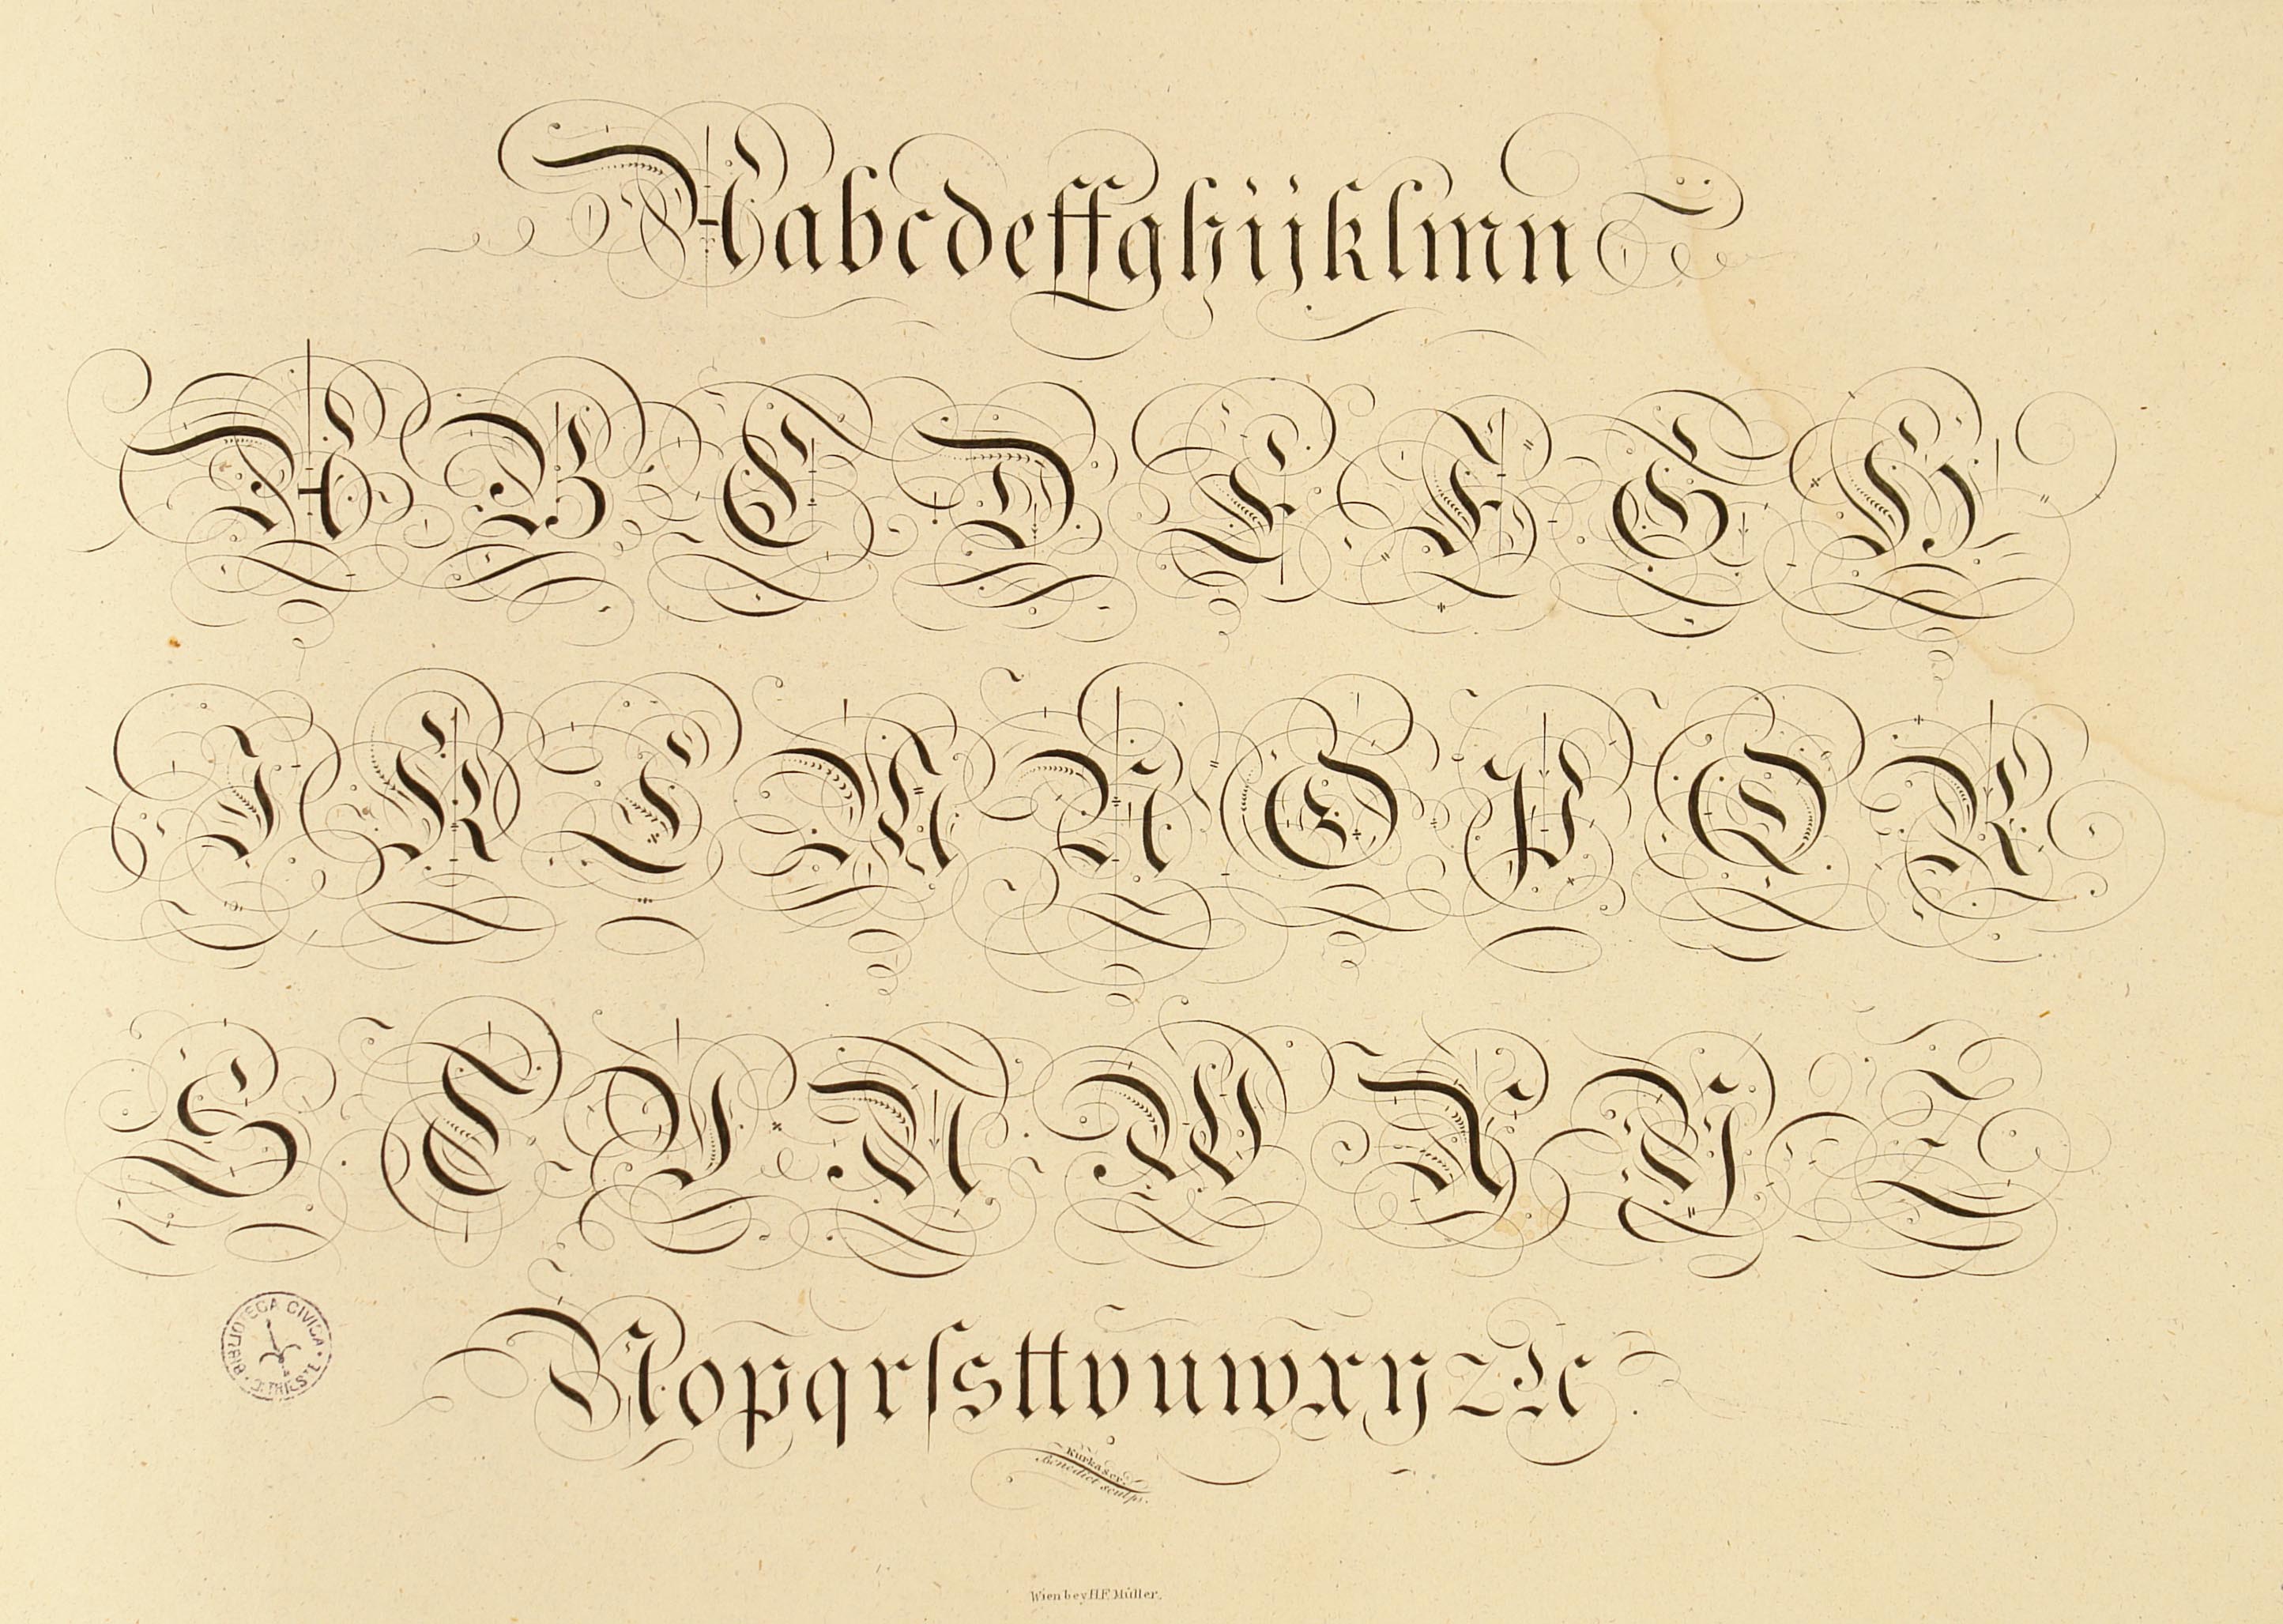 Aabcdeffghijklmn
A B C D E F G H
I K L M N O P Q R
S T V U W X Y Z
Nopqrſsttvuwxyz ꝛc.
BIBLIOTECA CIVICA
Kurka scr.
Benedict sculps.
Wien bey H.F. Müller.